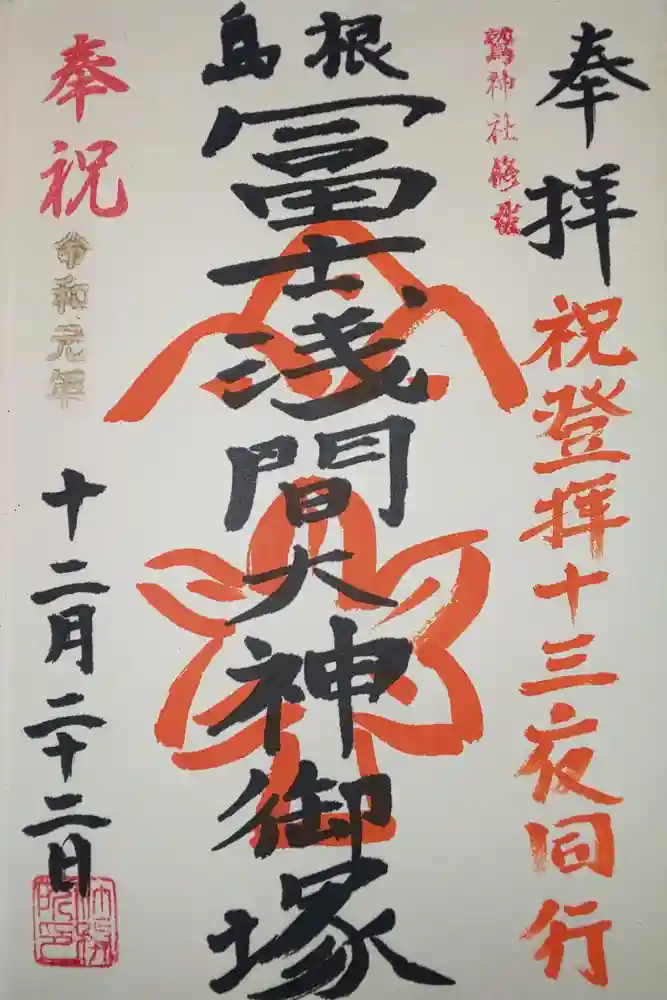 奉拝
祝登拝十三夜同行
鷲神社修
島根
冨士浅間大神御塚
奉祝
令和元年
十二月二十二日